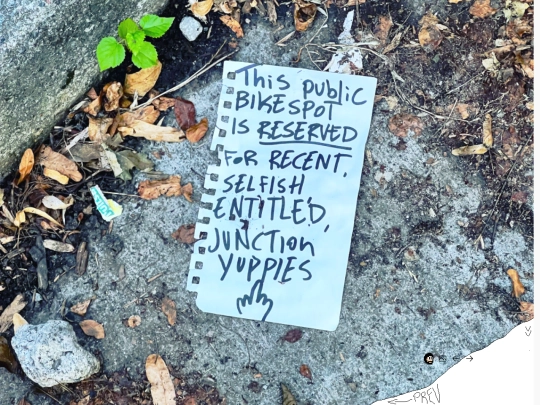 This public
BIKESPOT
IS RESERVED
FOR RECENT,
SELFISH
ENTITLED,
JUNCTION
YUPPIES
PREV